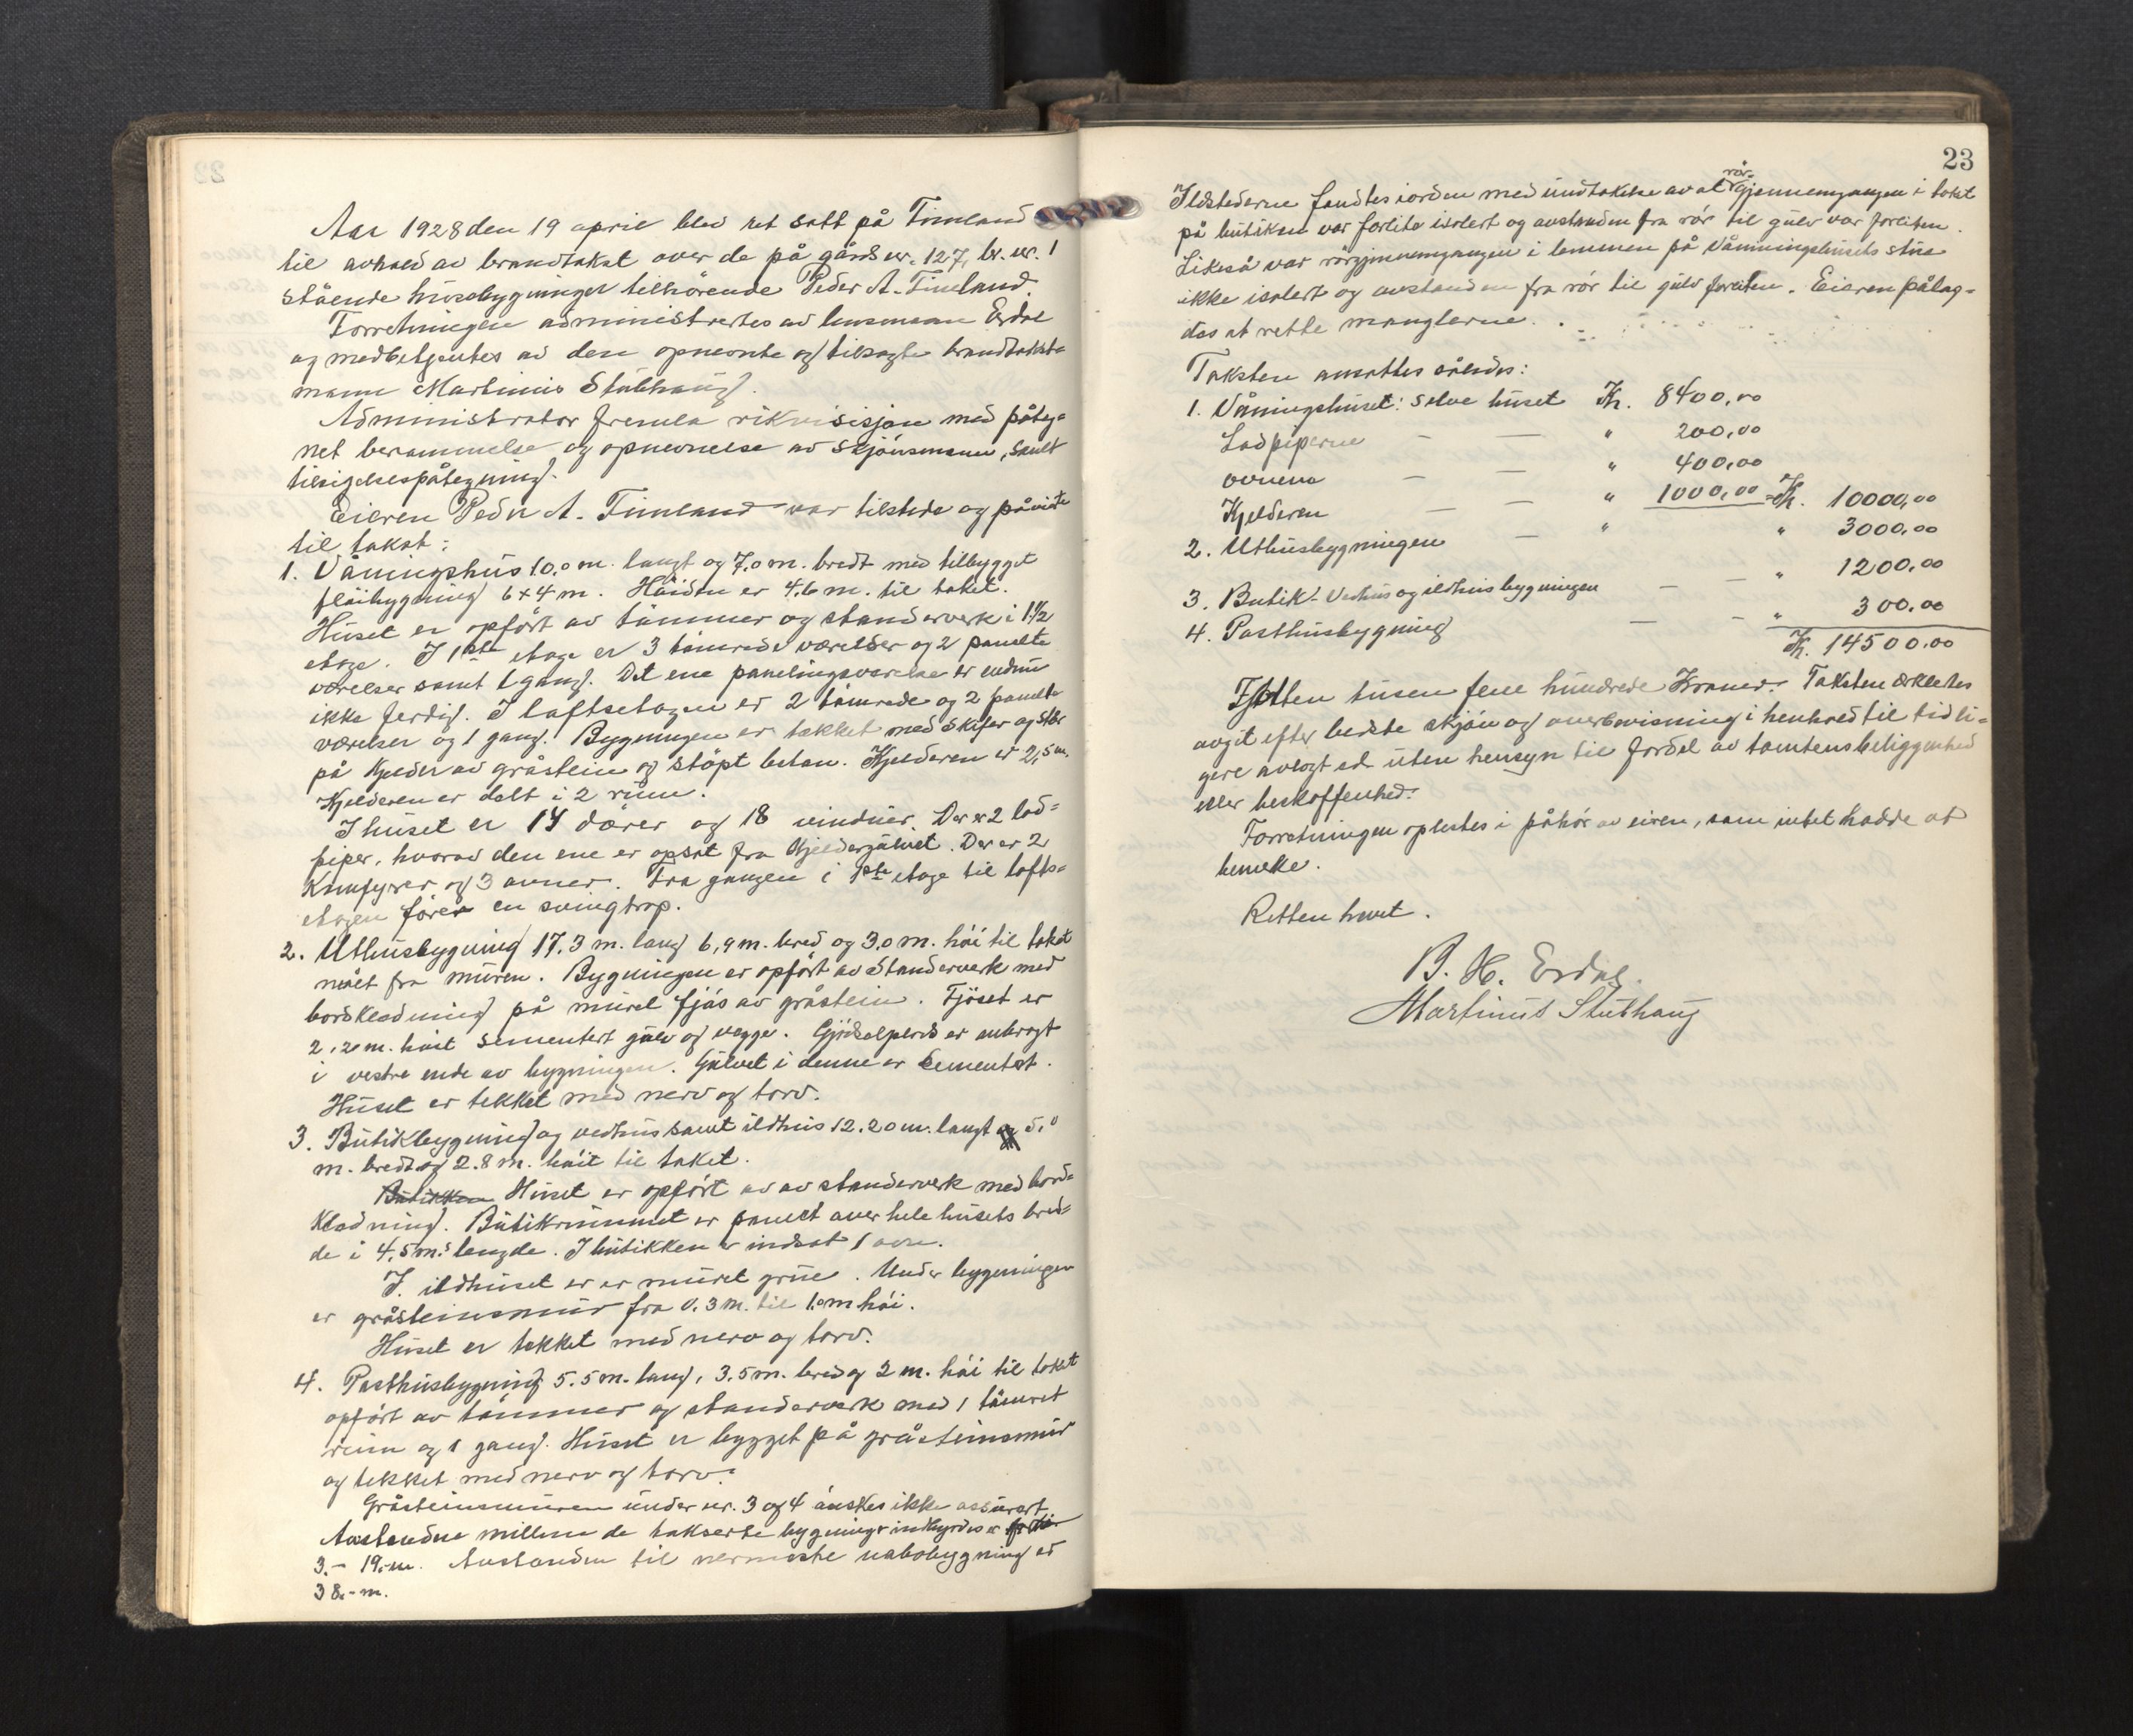 Aar 1928 den 19 april blev ret satt på Timland
til avhold av brandtakst over de på gårds nr. 127, br. nr. 1
stående husebygninger tilhörende Peder A. Timland.
Forretningen administrertes av lensmann Erdal
og medbetjentes av den opnevnte og tilsagte brandtakst=
mann Martinus Stubhaug.
Administrator fremla rikvisisjon med påteg=
net berammelse og opnevnelse av skjönsmenn, samt
tilsigelsespåtegning.
Eieren Peder A. Timland var tilstede og påviste
til takst:
1. Våningshus 10,0 m. langt og 7,0 m. bredt med tilbygget
flöibygning 6 x 4 m. Höiden er 4,6 m. til taket.
Huset er opfört av tömmer og standerverk i 1 1/2
etage. I 1ste etage er 3 tömrede værelser og 2 panelte
værelser samt 1 gang. Det ene panelingsværelse er endnu
ikke ferdig. I loftsetagen er 2 tömrede og 2 panelte
værelser og 1 gang. Bygningen er tekket med skifer og står
på kjelder av gråstein og stöpt beton. Kjelderen er 2,5 m.
Kjelderen er delt i 2 rum.
I huset er 14 dører og 18 vinduer. Der er 2 lod=
piper, hvorav den ene er opsat fra kjeldergulvet. Der er 2
Komfyrer og 3 ovner. Fra gangen i 1ste etage til lofts=
etagen förer en svingtrap.
2. Uthusbygning 17.3 m. lang 6,9 m. bred og 3,0 m. höi til taket
målt fra muren. Bygningen er opfört av standerverk med
bordkledning på muret fjös av gråstein. Fjöset er
2,20 m. höit sementert gulv og vegger. er anbragt
i vestre ende av bygningen. Gulvet i denne er sementert.
Huset er tekket med nerv og torv.
3. Butikbygning og vedhus samt ildhus 12.20 m. langt og 5,0
m. bredt og 2.8 m. höit til taket.
Butikken Huset er opfört av av standerverk med bord=
kledning. Butikrummet er panelt over hele husets bred=
de i 4,5 m.s lengde. I butikken er indsat 1 ovn.
I. ildhuset er er muret grue. Under bygningen
er gråsteinsmur fra 0.3 m. til 1.0 m höi.
Huset er tekket med nerv og torv.
4. Posthusbygning 5.5 m. lang, 3.5 m. bred og 2 m. höi til taket
opfört av tömmer og standerverk med 1 tömret
rum og 1 gang. Huset er bygget på gråsteinsmur
og tekket med nerv og torv.
Gråsteinsmuren under nr. 3 og 4 önskes ikke assurert.
Avstanden mellem de takserte bygninger indbyrdes er
3.- 19.- m. Avstanden til nermeste nabobygning er
38.- m.
23
Ildstederne fandtes iorden med undtakelse av at rör-gjennemgangen i taket
på butiken var forlite isolert og avstanden fra rör til gulv var forliten.
Likeså var rörgjennemgangen i lemmen på Våningshusets stue
ikke isolert og avstanden fra rör til gulv forliten. Eieren påleg=
des at rette manglerne.
Taksten ansattes således:
1. Våningshuset: selve huset Kr. 8400,00
Lodpiperne - — " 200,00
ovnene - — " 400,00
Kjelderen — — " 1000,00 = Kr. 10000,00
2. Uthusbygningen — " " 3000.00
3. Butik- Vedhus og ildhus bygningen — — " 1200.00
4. Posthusbygning — — " 300.00
Kr. 14500.00
Fjotten tusen feme hundrede Kroner. Taksten erkleres
avgit efter bedste skjön og overbevisning i henhold til tidli=
gere avlagt ed uten hensyn til fordel av tomtens beliggenhed
eller beskaffenhed.
Forretningen oplestes i påhör av eieren, som intet hadde at
bemerke.
Retten hevet.
B. H. Erdal.
Martinus Stubhaug